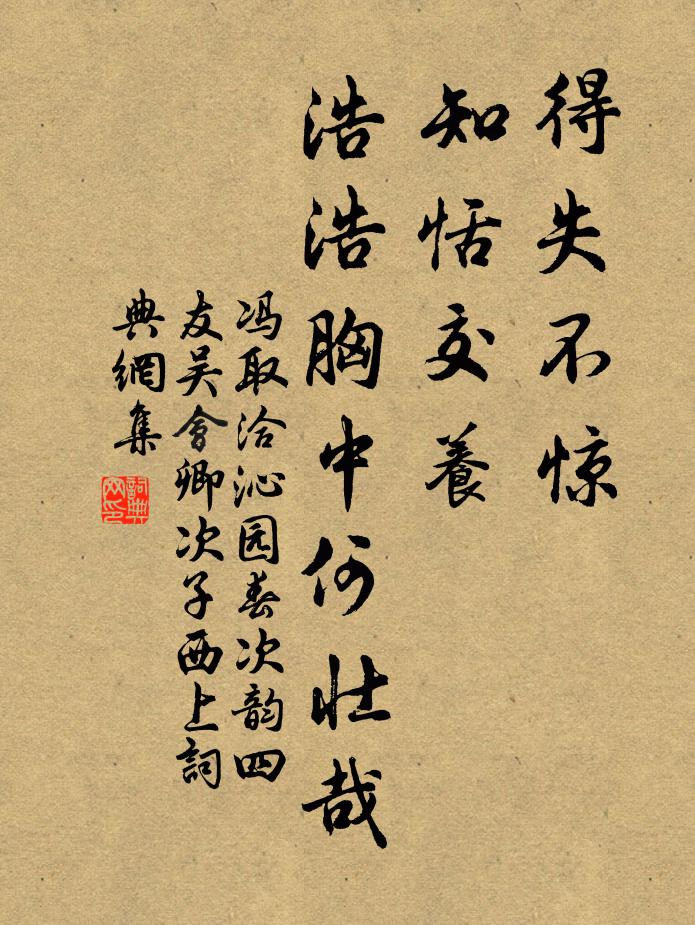 得失不惊
知恬交養
浩浩胸中何壮哉
冯取洽沁园春次韵四
友吴會卿次子西上詞
典網集
詞典
网印